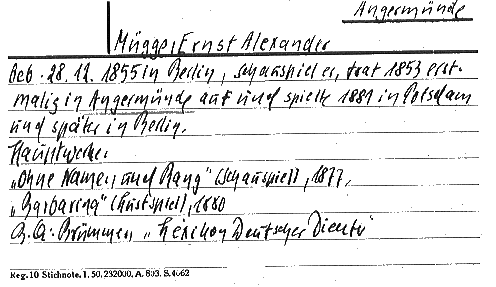 Angermünde
Mügge, Ernst Alexander
Geb. 28.12.1855 in Berlin, Schauspieler, trat 1853 erst-
malig in Angermünde auf und spielte 1881 in Potsdam
und später in Berlin.
Hauptwerke:
„Ohne Namen und Rang" (Schauspiel), 1877,
„Barbarina" (Lustspiel), 1880
Brümmer, „Lexikon Deutscher Dichter"
Reg. 10 Stichnote. 1. 50, 232000, A. 893. S. 4662